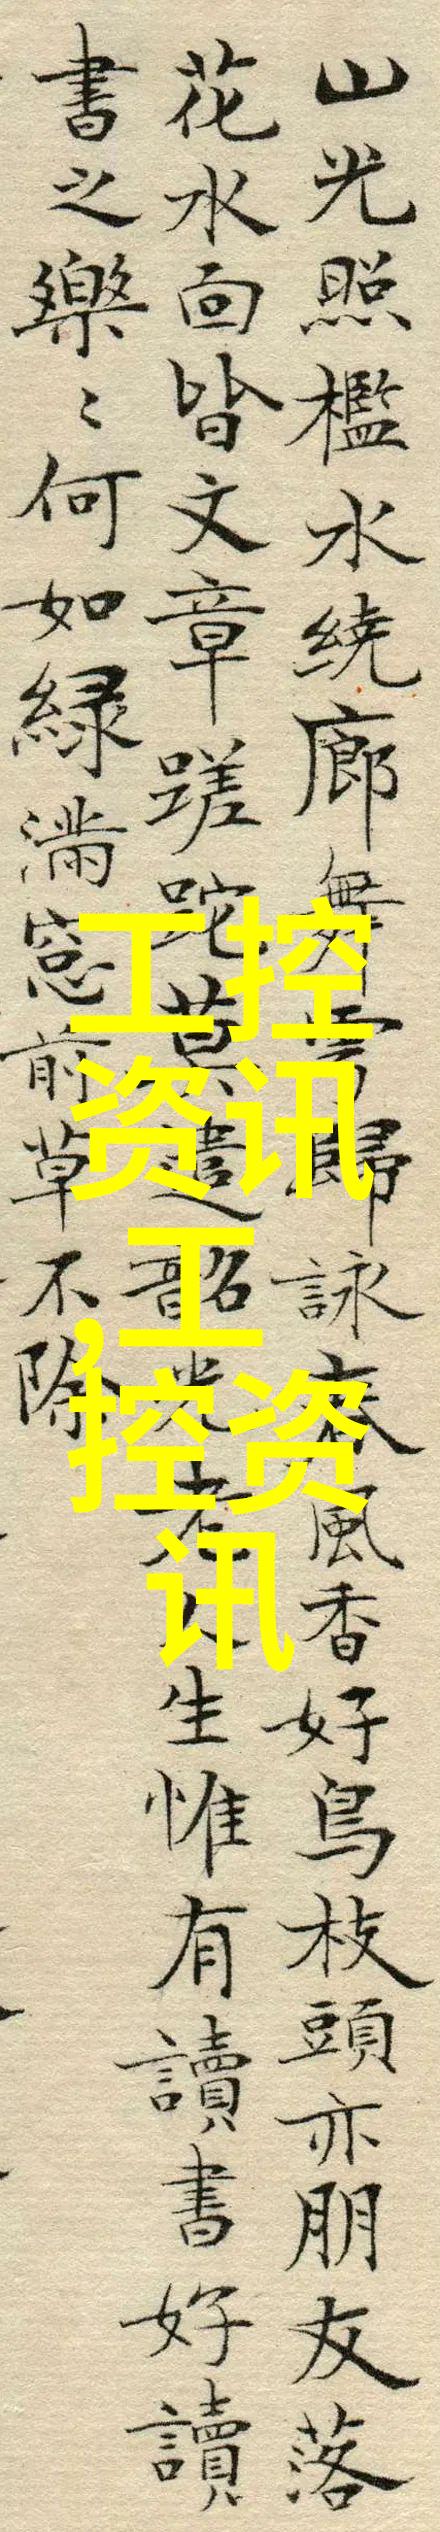 山光照檻水繞廊舞雩歸詠春風香好鳥枝頭亦朋友落
花水面皆文章蹉跎莫遣韶光老人生惟有讀書好讀
書之樂〻何如綠滿窓前草不除
工控
资讯
,工
控资
讯